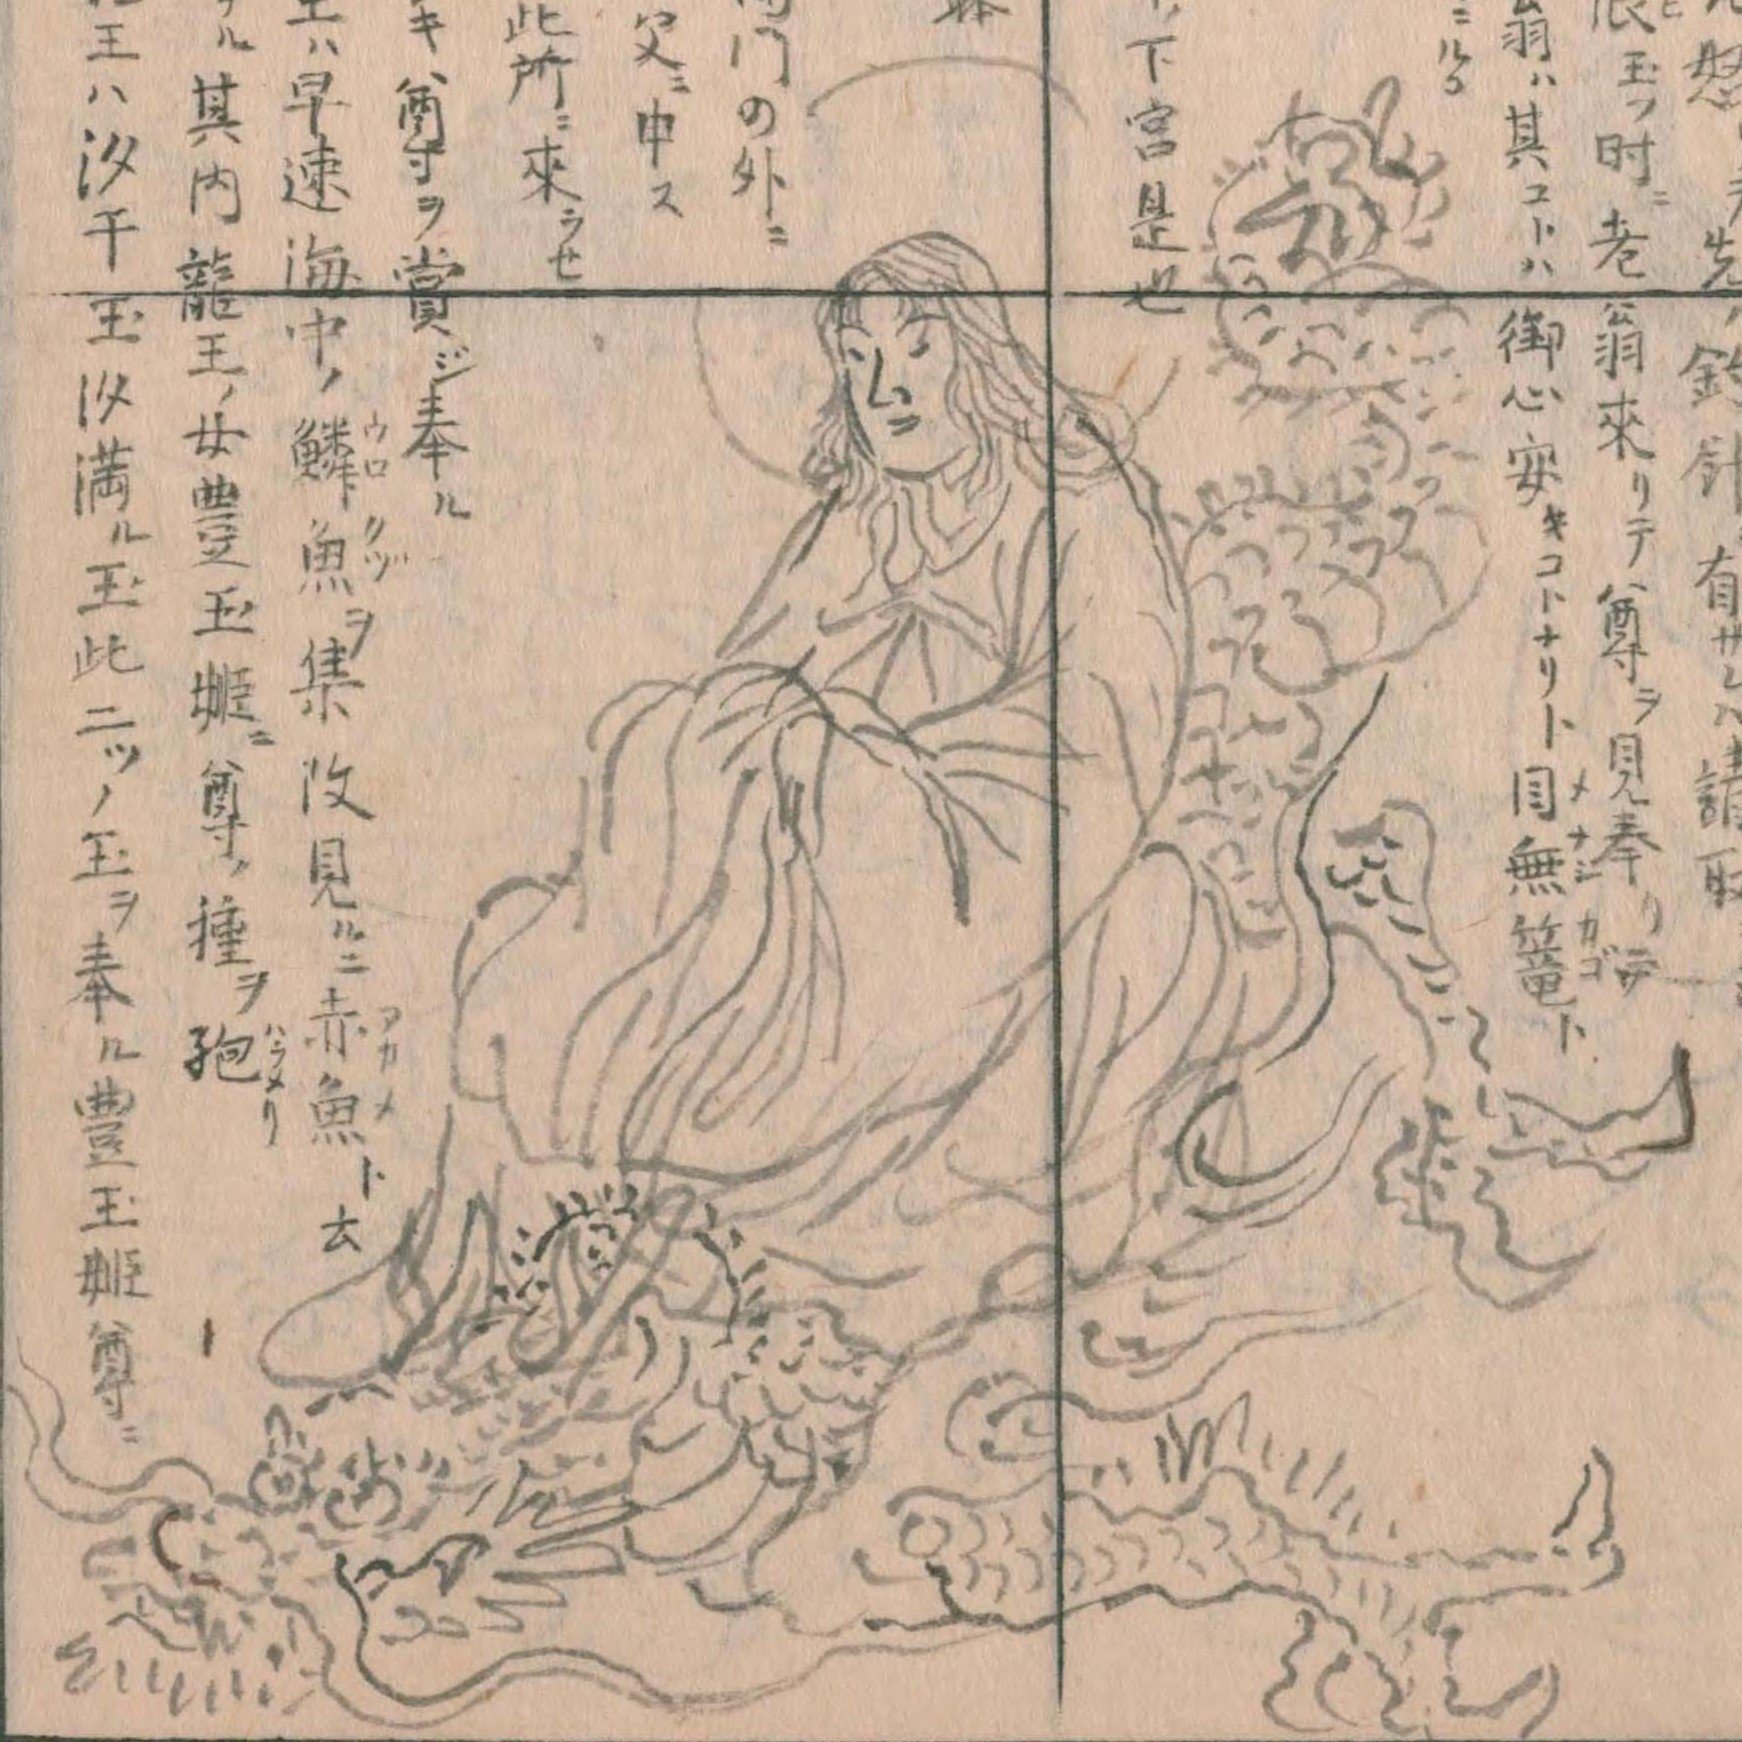 先ノ釣針有サレハ請取
玉フ時ニ老翁來リテ尊ヲ見奉リテ
翁ハ其コトハ御心安キコトナリト目無篭ト
メナシカゴ
ニルコ
下宮是也
門の外ニ
父ニ申ス
此所ニ來ラせ
キ尊ヲ賞ジ奉ル
ハ早速海中ノ鱗魚ヲ集改見ルニ赤魚ト云
ウロクヅ
アカメ
ル其内龍王ノ女豊玉姫ニ尊ノ種ヲ孢
ハラメリ
王ハ汐干玉汐満ル玉此ニツノ玉ヲ奉ル豊玉姫尊ニ